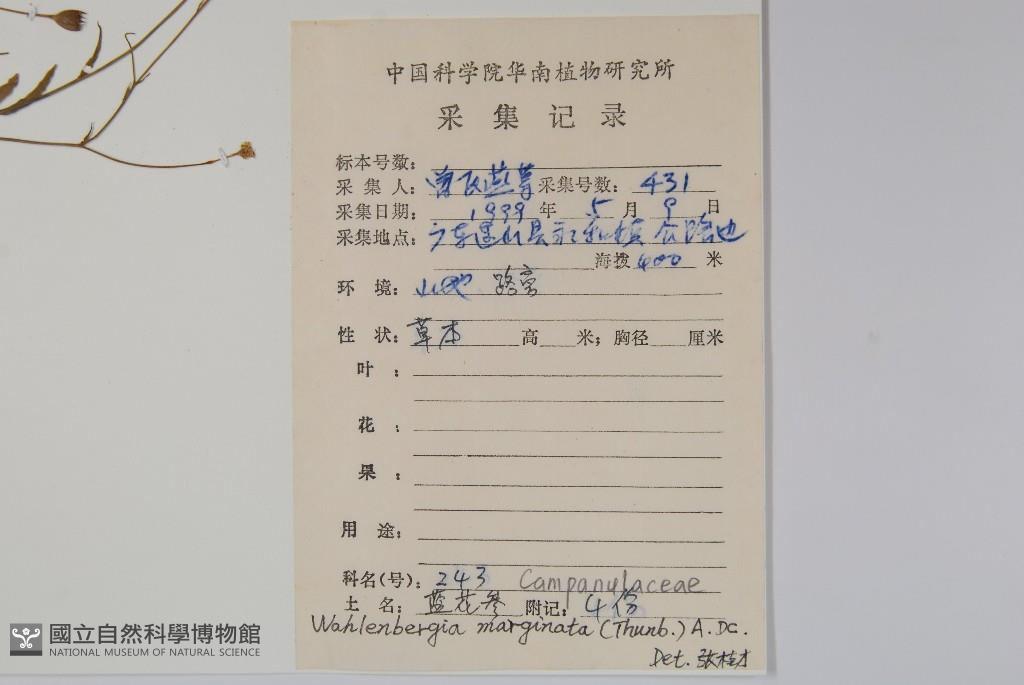 中国科学院华南植物研究所
采集记录
标本号数:
采集人: 曾飞燕等 采集号数: 431
采集日期: 1999 年 5 月 9 日
采集地点: 广东 县 公路边
海拨 400 米
环境: 山地 路旁
性状: 草本 高 米; 胸径 厘米
叶:
花:
果:
用途:
科名(号): 243 Campanulaceae
土名: 蓝花参 附记: 4份
Wahlenbergia marginata (Thunb.) A. DC.
Det. 张桂才
國立自然科學博物館
NATIONAL MUSEUM OF NATURAL SCIENCE